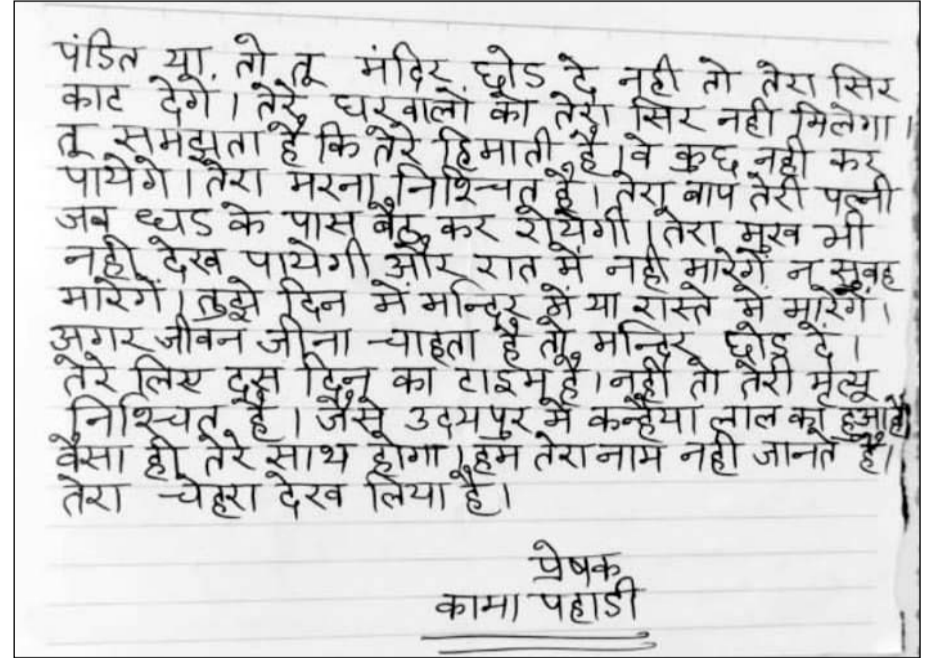 पंडित या तो तू मंदिर छोड दे नही तो तेरा सिर
काट देगे। तेरे घरवालों को तेरा सिर नही मिलेगा।
तू समझता है कि तेरे हिमाती है। वे कुछ नही कर
पायेगे। तेरा मरना निश्चित है। तेरा बाप तेरी पत्नी
जब धड के पास बैठ कर रोयेगी। तेरा मुख भी
नही देख पायेगी और रात में नही मारेगें न सुबह
मारेगें। तुझे दिन में मन्दिर में या रास्ते में मारेगें।
अगर जीवन जीना चाहता है तो मन्दिर छोड दें।
तेरे लिए दस दिन का टाइम है। नही तो तेरी मृत्यू
निश्चित है। जैसे उदयपुर में कन्हैया लाल का हुआ है
वैसा ही तेरे साथ होगा। हम तेरा नाम नही जानते है।
तेरा चेहरा देख लिया है।
प्रेषक
कामा पहाडी